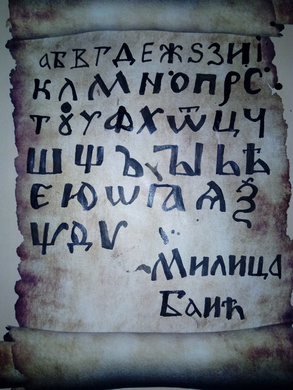 а б в в г д е ж ѕ з и і
к л м н о п р с
т ꙋ у ф х ѿ ц ч
ш щ ъ ꙑ ь ѣ
є ю ѡ ꙗ ѧ ѯ
ѱ д ѵ
Милица
Баић